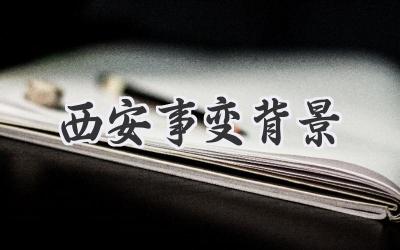 西安事变背景